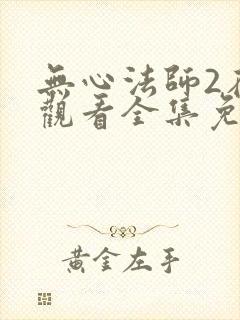 無心法師2
觀看全集免
黃金左手